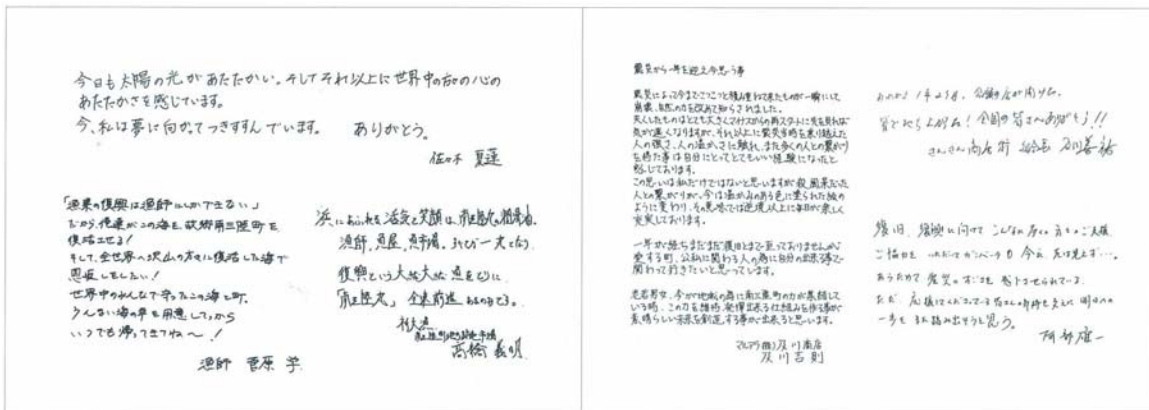 今日も太陽の光があたたかい。そしてそれ以上に世界中の方々の心の
あたたかさを感じています。
今、私は夢に向かってつきすすんでいます。 ありがとう。
佐々木 夏蓮
「漁業の復興は漁師にしかできない」
だから、俺達がこの海を、故郷南三陸町を
復活させる!
そして、全世界へ沢山の方々に復活した海で
恩返しをしたい!
世界中のみんなで守ったこの海と町。
うんまい海の幸を用意してっから
いつでも帰ってきてね〜!
漁師 菅原 学
浜にあふれる活気と笑顔は、南三陸の
漁師、魚屋、魚市場。
復興という大きな大きな
「南三陸」 全速前進
高橋 義明
震災から一年を迎え今思う事
震災によって今までこつこつと積み重ねて来たものが一瞬にして
崩壊、自然の力を改めて知らされました。
失くしたものはとても大きくてマイナスからの再スタートに先を見れば
気が遠くなりますが、それ以上に震災当時を乗り越えた
人の強さ、人の温かさに触れ、また多くの人との繋がり
を持た事は自分にとってとてもいい経験になったと
感じております。
この思いは私だけではないと思いますが殺風景だった
人との繋がりが、今は温かみのある色に塗られた絵の
ように変わり、その意味では逆境以上に毎日が楽しく
充実しております。
一年が経ちまだまだ復旧とまで至っておりませんが
愛する町、公私に関わる人の為に自分の出来る事で
関わって行きたいと思っています。
老若男女、今が地域の為に南三陸町の力が集結して
いる時、この力を維持、発揮出来る仕組みを作る事が
素晴らしい未来を創造する事が出来ると思います。
マルアラ(株)及川商店
及川吉則
1年2ヶ月、
皆で 全国の皆さんへありがとう!!
さんさん商店街 及川善祐
復旧、復興に向けて
ご協力を いただいて 今え、先は見えず…。
あらためて震災のすごさを 感じさせられている。
ただ、応援してくださっている皆さんの 支えに 明日への
一歩を また踏み出そうと思う。
阿部雄一